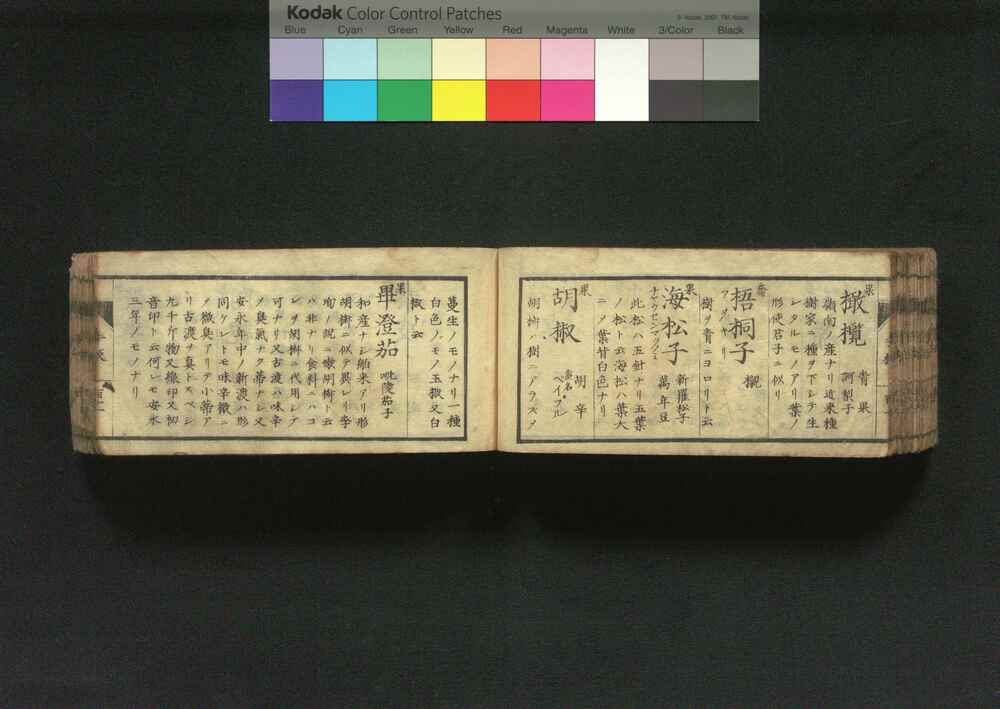 Kodak Color Control Patches
© Kodak, 2007. TM: Kodak
Blue Cyan Green Yellow Red Magenta White 3/Color Black
果
橄欖 青果
訶梨子
嶺南ノ産ナリ近来種
樹家ニ種ヲ下シテ生
シタルモノアリ葉ノ
形使君子ニ似リ
喬
梧桐子 櫬
アヲギリ
樹ヲ青ニヨロリト云
果
海松子 新羅松子
萬年豆
此松ハ五針ナリ五葉
ノ松ト云海松ハ葉大
ニノ葉甘白色ナリ
果
胡椒 胡辛
蛮名ペイプル
胡椒ハ樹ニアラズノ
蔓生ノモノナリ一種
白色ノモノ玉椒又白
椒ト云
果
畢澄茄 毗陵茄子
和産ナシ舶来アリ形
胡椒ニ似テ異レリ李
珣ノ説ニ嫩胡椒ト云
ハ非ナリ食料ニハコ
レヲ胡椒ニ代用シテ
可ナリ又古渡ハ味辛
ノ臭氣ナク蒂ナシ又
安永年中ノ新渡ハ形
同ケレトモ味辛微ニ
ノ微臭アリテ小蒂ア
リ古渡ヲ真トスベシ
九千斤物又條印又初
音印ト云何レモ安永
三年ノモノナリ